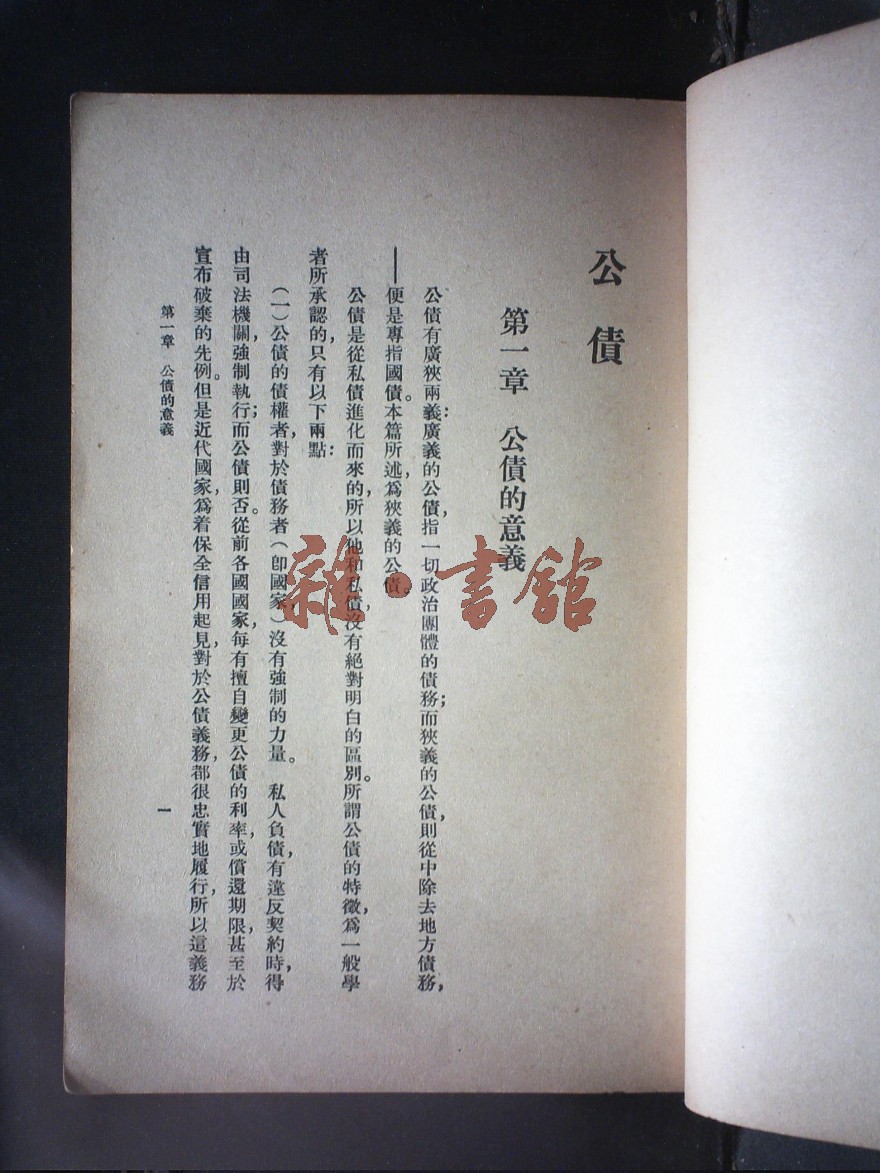 公債
第一章　公債的意義
公債有廣狹兩義：廣義的公債，指一切政治團體的債務；而狹義的公債，則從中除去地方債務，
——便是專指國債。本篇所述，爲狹義的公債。
公債是從私債進化而來的，所以他和私債，沒有絕對明白的區別。所謂公債的特徵，爲一般學
者所承認的，只有以下兩點：
（一）公債的債權者，對於債務者（卽國家，）沒有強制的力量。　私人負債，有違反契約時，得
由司法機關，強制執行；而公債則否。從前各國國家，每有擅自變更公債的利率，或償還期限，甚至於
宣布破棄的先例。但是近代國家，爲着保全信用起見，對於公債義務，都很忠實地履行，所以這義務
第一章　公債的意義
一
雜·書館